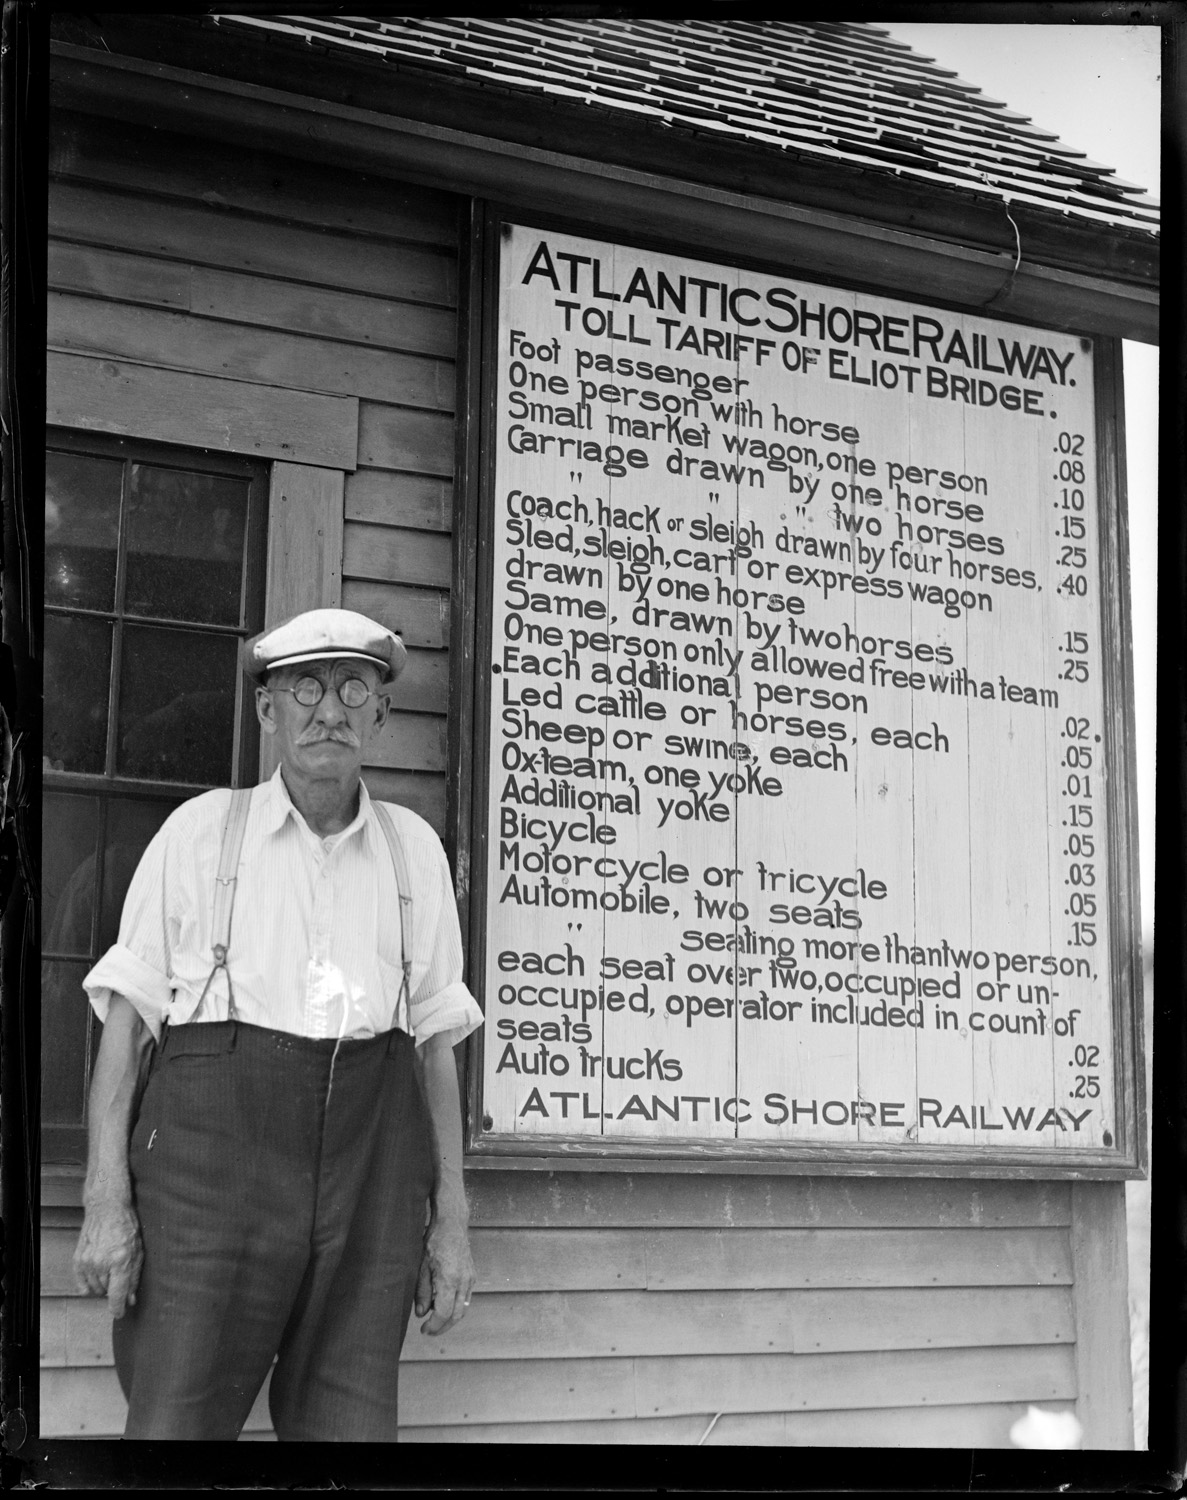 ATLANTIC SHORE RAILWAY.
TOLL TARIFF OF ELIOT BRIDGE.
Foot passenger .02
One person with horse .08
Small market wagon, one person .10
Carriage drawn by one horse .15
" " " two horses .25
Coach, hack or sleigh drawn by four horses, .40
Sled, sleigh, cart or express wagon
drawn by one horse .15
Same, drawn by two horses .25
One person only allowed free with a team
Each additional person .02
Led cattle or horses, each .05
Sheep or swine, each .01
Ox-team, one yoke .15
Additional yoke .05
Bicycle .03
Motorcycle or tricycle .05
Automobile, two seats .15
" seating more than two person,
each seat over two, occupied or un-
occupied, operator included in count of
seats .02
Auto trucks .25
ATLANTIC SHORE RAILWAY